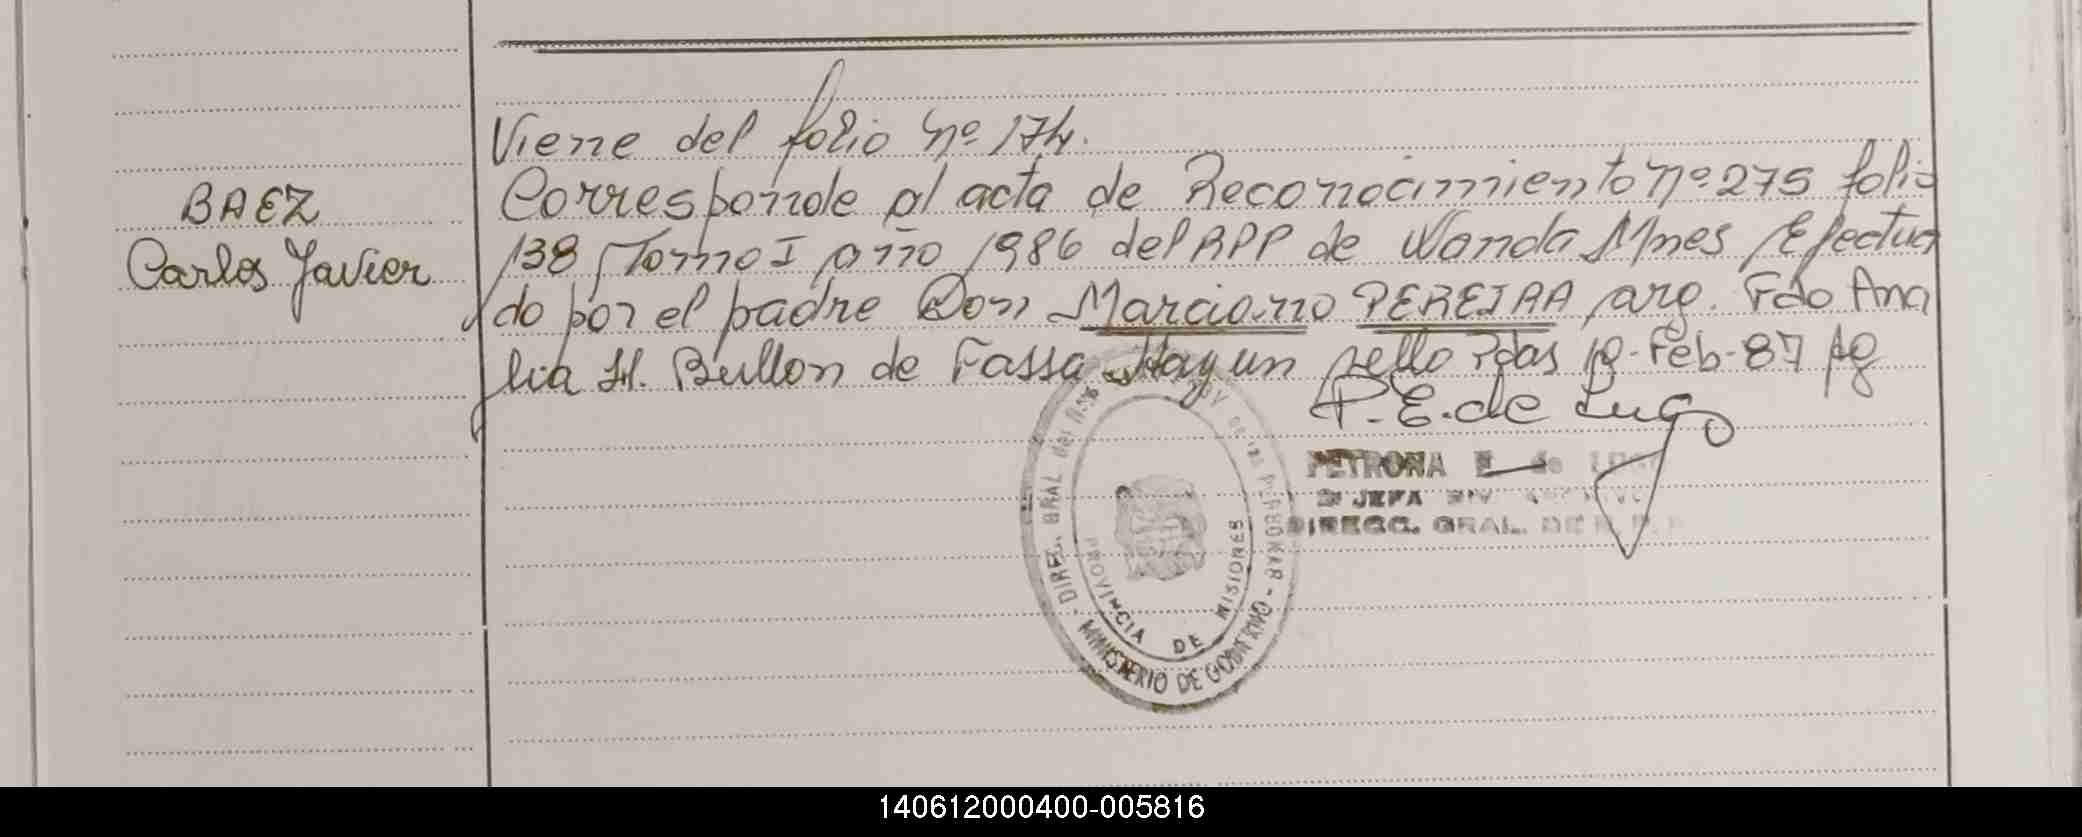 Viene del folio nº 174.
BAEZ
Carlos Javier
Corresponde al acta de Reconocimiento nº 275 folio
138 Tomo I año 1986 del RPP de Wanda Mnes Efectua
do por el padre Don Marciano PEREIRA arg. Fdo Ana
lia H. Bullon de Fassa Hay un sello Pdas Feb-87
P.E. de Lugo
PETRONA E de LUGO
JEFA DIV.
DIRECC. GRAL. DE R. P. P.
DIREC. GRAL del
MINISTERIO DE GOBIERNO
PROVINCIA DE MISIONES
140612000400-005816